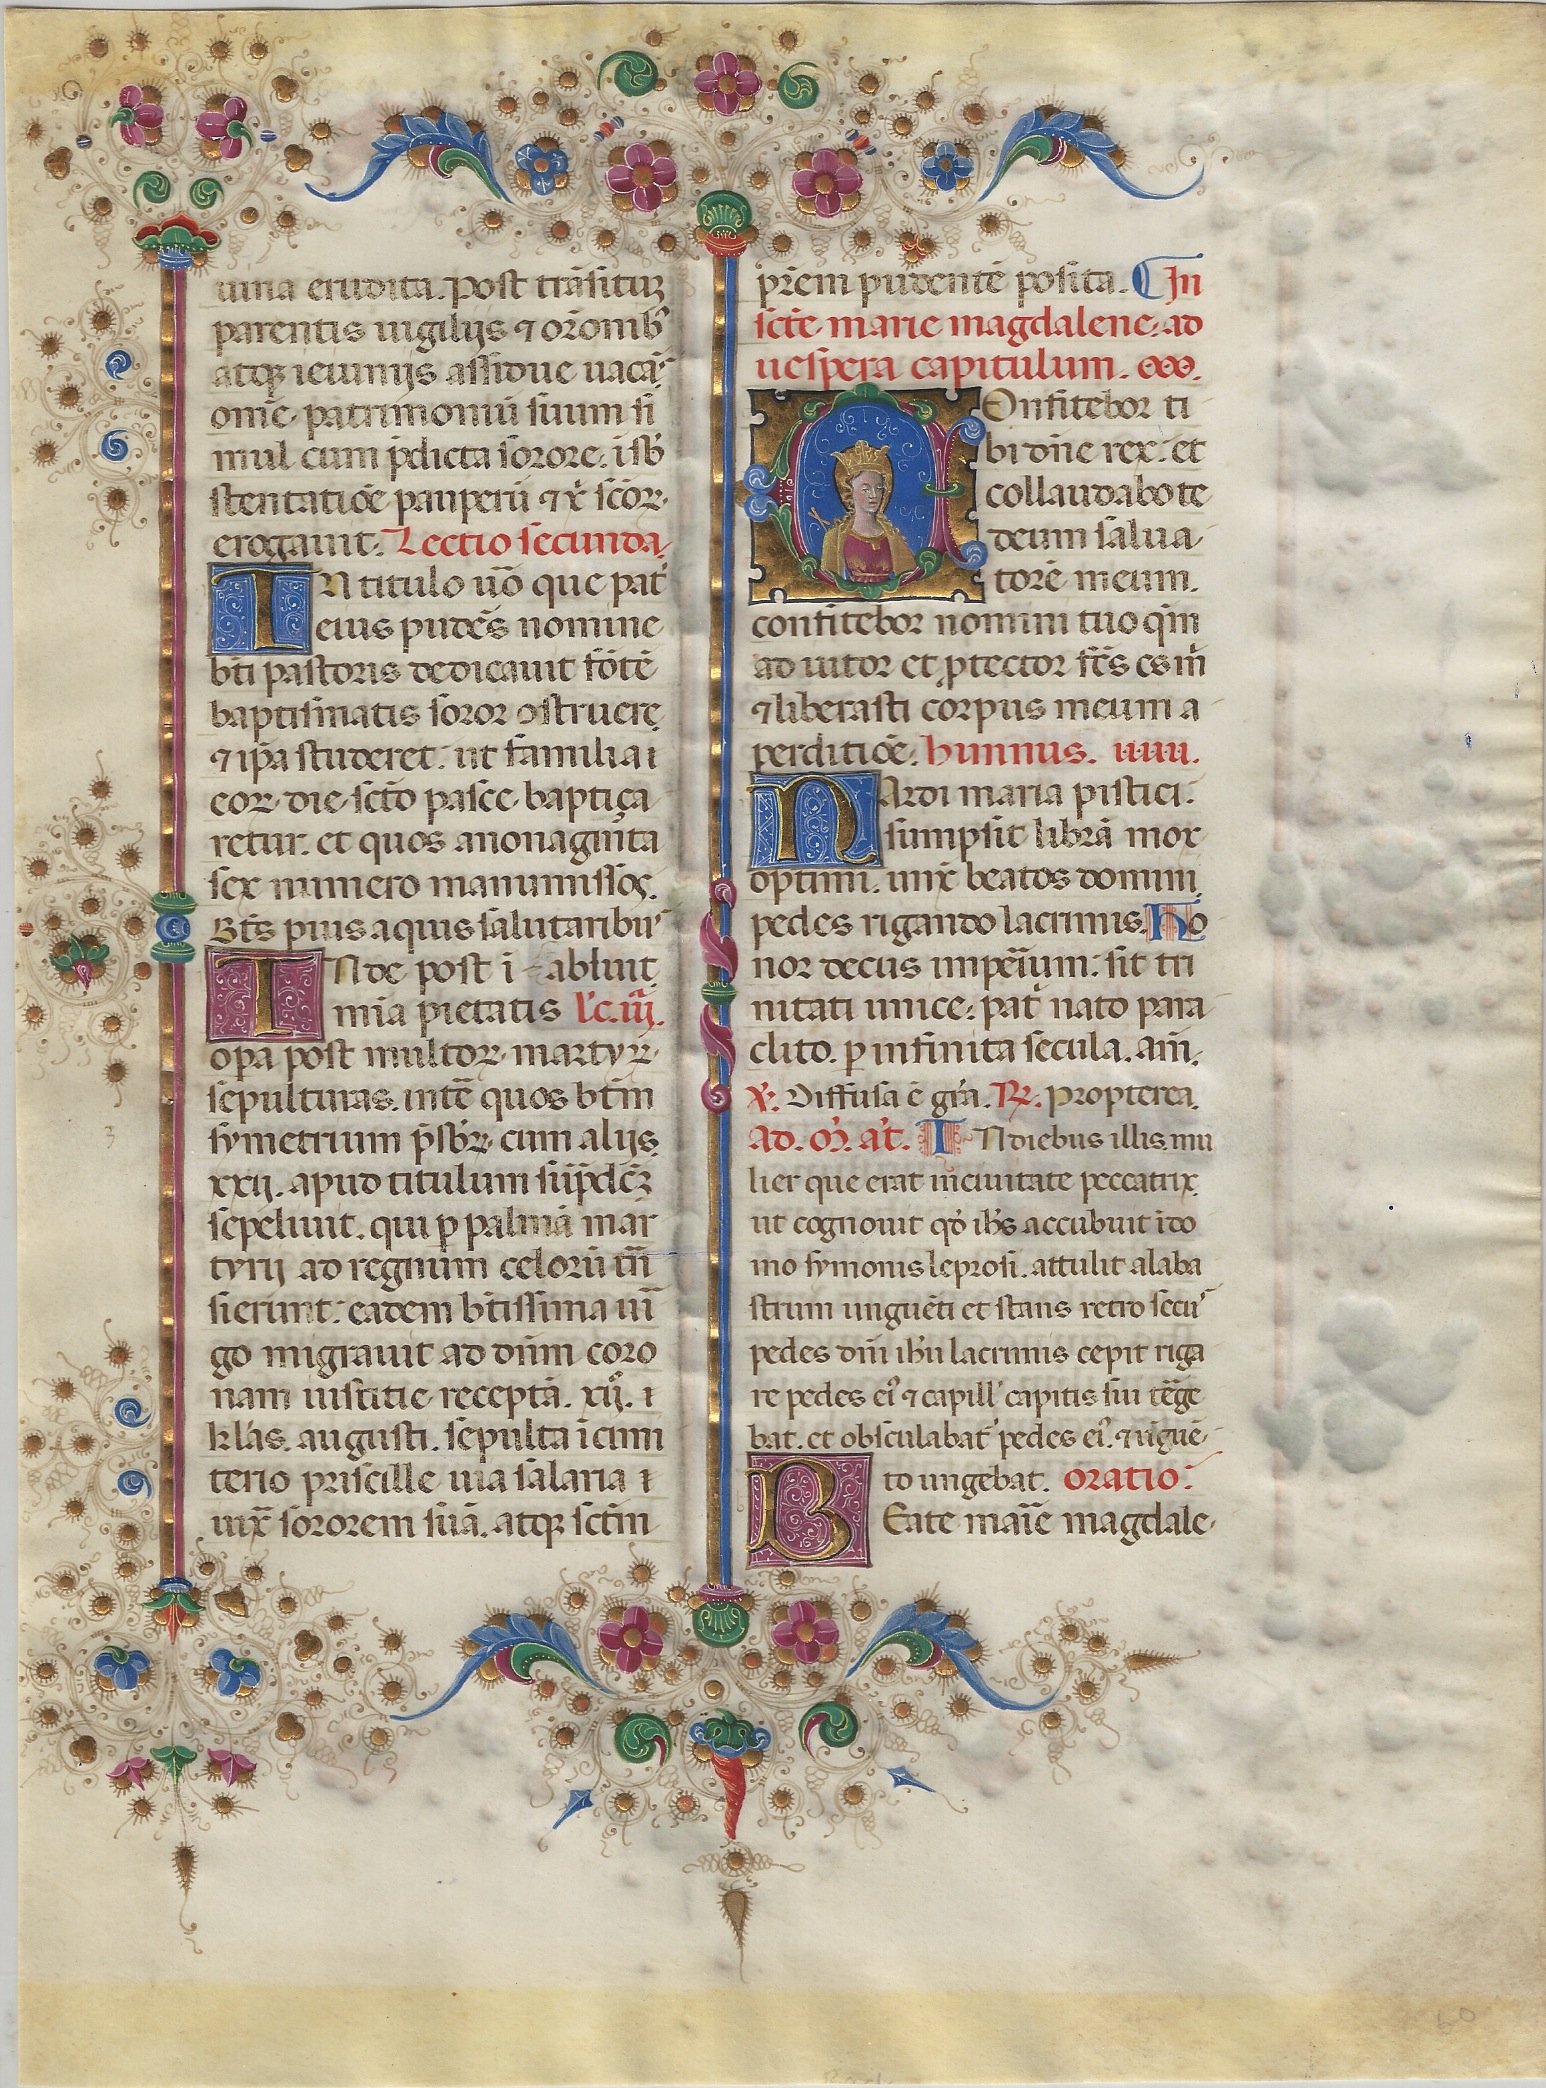 uina erudita. Post trāsituꝫ
parentis uigilijs ⁊ or̄onib'
atqꝫ ieiunijs assidue uacās
om̄e patrimoniū suum si
mul cum p̄dicta sorore. ī sb'
stentatiōe pauperū ⁊ x̄ sc̄oꝝ
erogauit. Lectio secunda.
IN titulo uō que pat̄
eius pudēs nomine
bt̄i pastoris dedicauit fōtē
baptismatis soror ꝯstruere
⁊ ip̄a studeret. ut familia ı
eoꝝ die sc̄to pasce baptiça
retur. et quos a nonaginta
sex numero manumissos.
Bt̄s pius aquis salutaribus
INde post ī abluit
mia pietatis l'c. iij.
opa post multoꝝ martyꝝ
sepulturas. int̄ quos bt̄m
symetrium p̄sb'ꝝ cum alijs
xxij. apud titulum sup̄dc̄ꝫ
sepeliuit. qui ꝑ palmā mar
tyrij ad regnum celorū t̄n
sierunt. eadem bt̄issima uir
go migrauit ad dn̄m coro
nam iustitie receptā. xij. ı
kl'as. augusti. sepulta ī cimi
terio priscille uia salaria ı
iux̄ sororem suā. atqꝫ sct̄m
p̄rem pudentē posita. In
sct̄e marie magdalene. ad
uespera capitulum.
COnfitebor ti
bi dn̄e rex. et
collaudabo te
deum salua
torē meum.
confitebor nomini tuo qm̄
adiutor et ꝓtector fc̄s es m̄
⁊ liberasti corpus meum a
perditiōe. himnus.
NArdi maria pistici.
sumpsit librā mox
optimi. unx̄ beatos domini
pedes rigando lacrimis. Ho
nor decus imperium. sit tri
nitati unice. pat̄ nato para
clito. ꝑ infinita secula. am̄.
℣. Diffusa ē gr̄a. ℟. Propterea.
Ad. M̄. at̄. IN diebus illis. mu
lier que erat in ciuitate peccatrix
ut cognouit qd̄ ih's accubuit ī do
mo symonis leprosi. attulit alaba
strum unguēti et stans retro secus
pedes dn̄i ih'u lacrimis cepit riga
re pedes ei' ⁊ capill' capitis sui t̄ge
bat. et obsculabat̄ pedes ei'. ⁊ ūguē
to ungebat. oratio.
BEate mar̄ie magdale